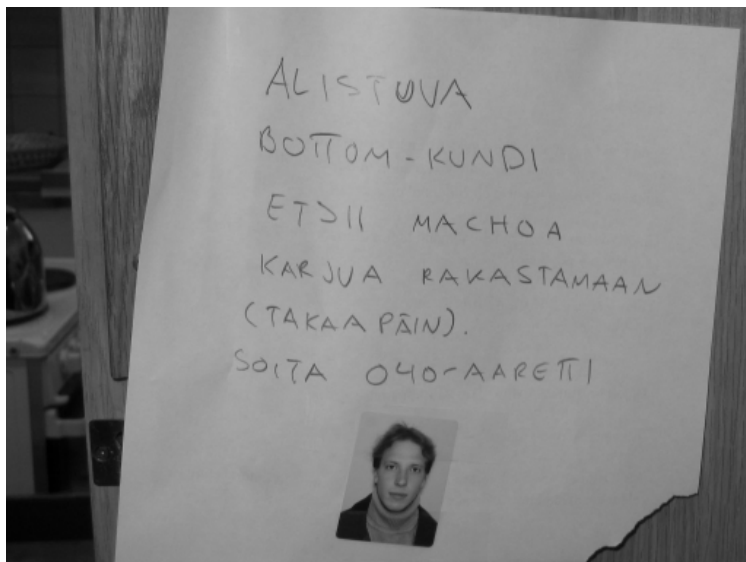 ALISTUVA
BOTTOM-KUNDI
ETSII MACHOA
KARJUA RAKASTAMAAN
(TAKAAPÄIN).
SOITA 040-AARETTI